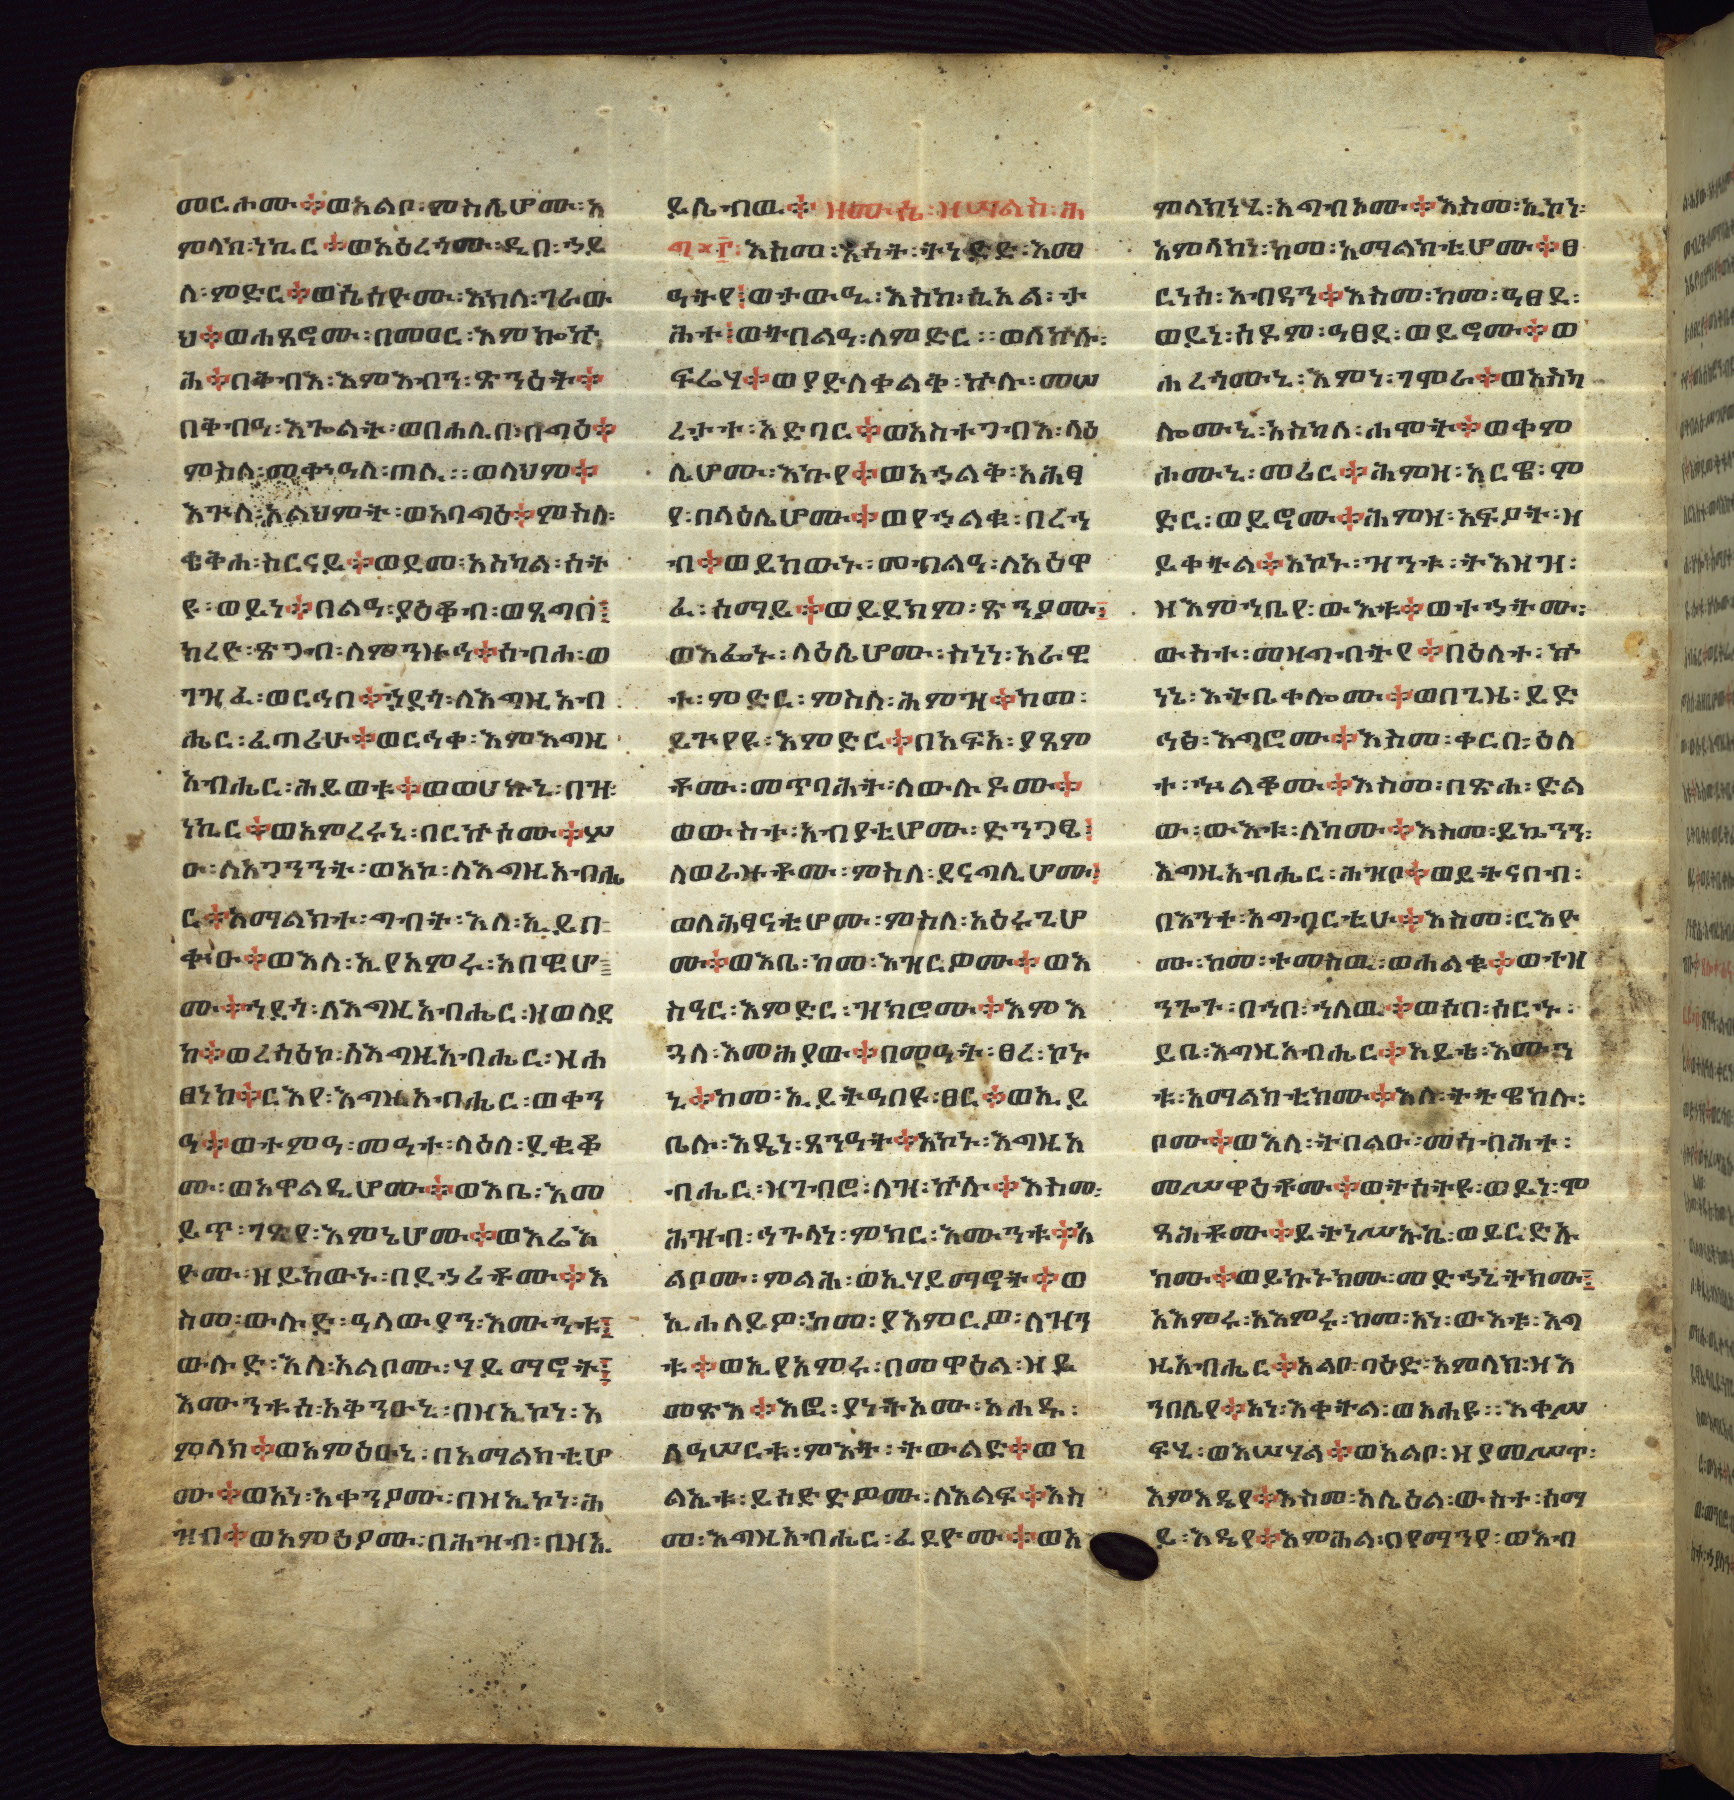 መርሖሙ፨ወአልቦ፡ምስሌሆሙ፡አ
ምላክ፡ነኪር፨ወአዕረጎሙ፡ዲበ፡ኀይ
ለ፡ምድር፨ወሴሰዮሙ፡እክለ፡ገራው
ህ፨ወሐፀኖሙ፡በመዐር፡እምኰኵ
ሕ፨በቅብእ፡እምእብን፡ጽንዕት፨
በቅብዓ፡እጐልት፡ወበሐሊበ፡በግዕ፨
ምስለ፡መቍዓለ፡ጠሊ፡፡ወላህም፨
እጕለ፡አልህምት፡ወአባግዕ፨ምስለ፡
ቄቅሐ፡ስርናይ፨ወደመ፡አስካል፡ሰት
ዩ፡ወይነ፨በልዓ፡ያዕቆብ፡ወጸግበ፤
ክረድ፡ጽጉብ፡ለምንዙዓ፨ሰብሐ፡ወ
ገዝፈ፡ወርኅበ፨ኀደጎ፡ለእግዚአብ
ሔር፡ፈጣሪሁ፨ወርኅቀ፡እምእግዚ
አብሔር፡ሕይወቱ፨ወወሀኩኒ፡በዝ፡
ነኪር፨ወአምረሩኒ፡በርኵሰሙ፨ሦ
ዑ፡ለአጋንንት፡ወአኮ፡ለእግዚአብሔ
ር፨አማልክተ፡ግብት፡እለ፡ኢይበ
ቍዑ፨ወእለ፡ኢየአምሩ፡አበዊሆ
ሙ፨ኀደጎ፡ለእግዚአብሔር፡ዘወለደ
ከ፨ወረሳዕኮ፡ለእግዚአብሔር፡ዘሐ
ፀነከ፨ርእየ፡እግዚአብሔር፡ወቀን
ዓ፨ወተምዓ፡መዓተ፡ላዕለ፡ደቂቆ
ሙ፡ወአዋልዲሆሙ፨ወእቤ፡እመ
ይጥ፡ገጽየ፡እምኔሆሙ፨ወእሬእ
ዮሙ፡ዘይከውኑ፡በደኃሪቶሙ፨እ
ስመ፡ውሉድ፡ዓላውያን፡እሙንቱ፤
ውሉድ፡እለ፡አልቦሙ፡ሃይማኖት፤
እሙንቱሰ፡አቅንዑኒ፡በዘኢኮነ፡አ
ምላክ፨ወአምዕዑኒ፡በአማልክቲሆ
ሙ፨ወአነ፡አቀንዖሙ፡በዘኢኮነ፡ሕ
ዝብ፨ወአምዕዖሙ፡በሕዝብ፡በዘኢ
ይሌብዉ፨ዘሙሴ፡ዘሣልስ፡ሕ
ግ፡ እስመ፡እሳት፡ትነድድ፡እመ
ዓትየ፤ወታውዒ፡እስከ፡ሲኦል፡ታ
ሕተ፤ወትበልዓ፡ለምድር፡፡ወለኵሉ፡
ፍሬሃ፨ወያድለቀልቅ፡ኵሉ፡መሠ
ረታተ፡አድባር፨ወአስተጋብእ፡ላዕ
ሌሆሙ፡እኩየ፨ወአኀልቅ፡አሕፃ
የ፡በላዕሌሆሙ፨ወየኀልቁ፡በረኀ
ብ፨ወይከውኑ፡መብልዓ፡ለአዕዋ
ፈ፡ሰማይ፨ወይደክም፡ጽንዖሙ፤
ወእፌኑ፡ላዕሌሆሙ፡ስነነ፡አራዊ
ተ፡ምድር፡ምስለ፡ሕምዝ፨ከመ፡
ይጕየዩ፡እምድር፨በአፍአ፡ያጸም
ቶሙ፡መጥባሕት፡ለውሉዶሙ፨
ወውስተ፡አብያቲሆሙ፡ድንጋፄ፤
ለወራዙቶሙ፡ምስለ፡ደናግሊሆሙ፤
ወለሕፃናቲሆሙ፡ምስለ፡አዕሩጊሆ
ሙ፨ወእቤ፡ከመ፡እዝርዖሙ፨ወእ
ስዓር፡እምድር፡ዝክሮሙ፨እምእ
ጓለ፡እመሕያው፨በመዓት፡ፀረ፡ኮኑ
ኒ፨ከመ፡ኢይትዓበዩ፡ፀር፨ወኢይ
ቤሉ፡እዴነ፡ጸንዓት፨አኮኑ፡እግዚአ
ብሔር፡ዘገብሮ፡ለዝ፡ኵሉ፨እስመ፡
ሕዝብ፡ዓጉላነ፡ምክር፡እሙንቱ፨አ
ልቦሙ፡ምልሕ፡ወኢሃይማኖት፨ወ
ኢሐለይዎ፡ከመ፡ያእምርዎ፡ለዝን
ቱ፨ወኢየአምሩ፡በመዋዕል፡ዘይ
መጽእ፨እፎ፡ያነትእሙ፡አሐዱ፡
ለዓሠርቱ፡ምእት፡ትውልድ፨ወክ
ልኤቱ፡ይሰድድዎሙ፡ለእልፍ፨እስ
መ፡እግዚአብሔር፡ፈደዮሙ፨ወአ
ምላክነሂ፡አግብኦሙ፨እስመ፡ኢኮነ፡
አምላክነ፡ከመ፡አማልክቲሆሙ፨ፀ
ርነሰ፡አብዳን፨እስመ፡ከመ፡ዓፀደ፡
ወይነ፡ሰዶም፡ዓፀደ፡ወይኖሙ፨ወ
ሐረጎሙኒ፡እምነ፡ገሞራ፨ወአስካ
ሎሙኒ፡አስካለ፡ሐሞት፨ወቀም
ሕሙኒ፡መሪር፨ሕምዘ፡አርዌ፡ም
ድር፡ወይኖሙ፨ሕምዘ፡አፍዖት፡ዘ
ይቀትል፨አኮኑ፡ዝንቱ፡ትእዛዝ፡
ዘእምኀቤየ፡ውእቱ፨ወተኀትሙ፡
ውስተ፡መዛግብትየ፨በዕለተ፡ኵ
ነኔ፡እትቤቀሎሙ፨ወበጊዜ፡ይድ
ዓፅ፡እግሮሙ፨እስመ፡ቀርበ፡ዕለ
ተ፡ኀልቆሙ፨እስመ፡በጽሐ፡ድል
ው፡ውእቱ፡ለክሙ፨እስመ፡ይኴንን፡
እግዚአብሔር፡ሕዝቦ፨ወይትናበብ፡
በእንተ፡አግብርቲሁ፨እስመ፡ርእዮ
ሙ፡ከመ፡ተመስዉ፡ወሐልቁ፨ወተዘ
ንጐጉ፡በኀበ፡ኀለዉ፨ወሰበ፡ሰርኁ፡
ይቤ፡እግዚአብሔር፨አይቴ፡እሙን
ቱ፡አማልክቲክሙ፨እለ፡ትትዌከሉ፡
ቦሙ፨ወእለ፡ትበልዑ፡መስብሕተ፡
መሥዋዕቶሙ፨ወትሰትዩ፡ወይነ፡ሞ
ጻሕቶሙ፨ይትነሥኡኬ፡ወይርድኡ
ክሙ፨ወይኩኑክሙ፡መድኀኒትክሙ፤
አእምሩ፡አእምሩ፡ከመ፡አነ፡ውእቱ፡እግ
ዚአብሔር፨አልቦ፡ባዕድ፡አምላክ፡ዘእ
ንበሌየ፨አነ፡እቀትል፡ወአሐዩ፡፡እቀሥ
ፍሂ፡ወእሣሃል፨ወአልቦ፡ዘያመሥጥ፡
እምእዴየ፨እስመ፡አሌዕል፡ውስተ፡ሰማ
ይ፡እዴየ፨እምሕል፡በየማንየ፡ወእብ